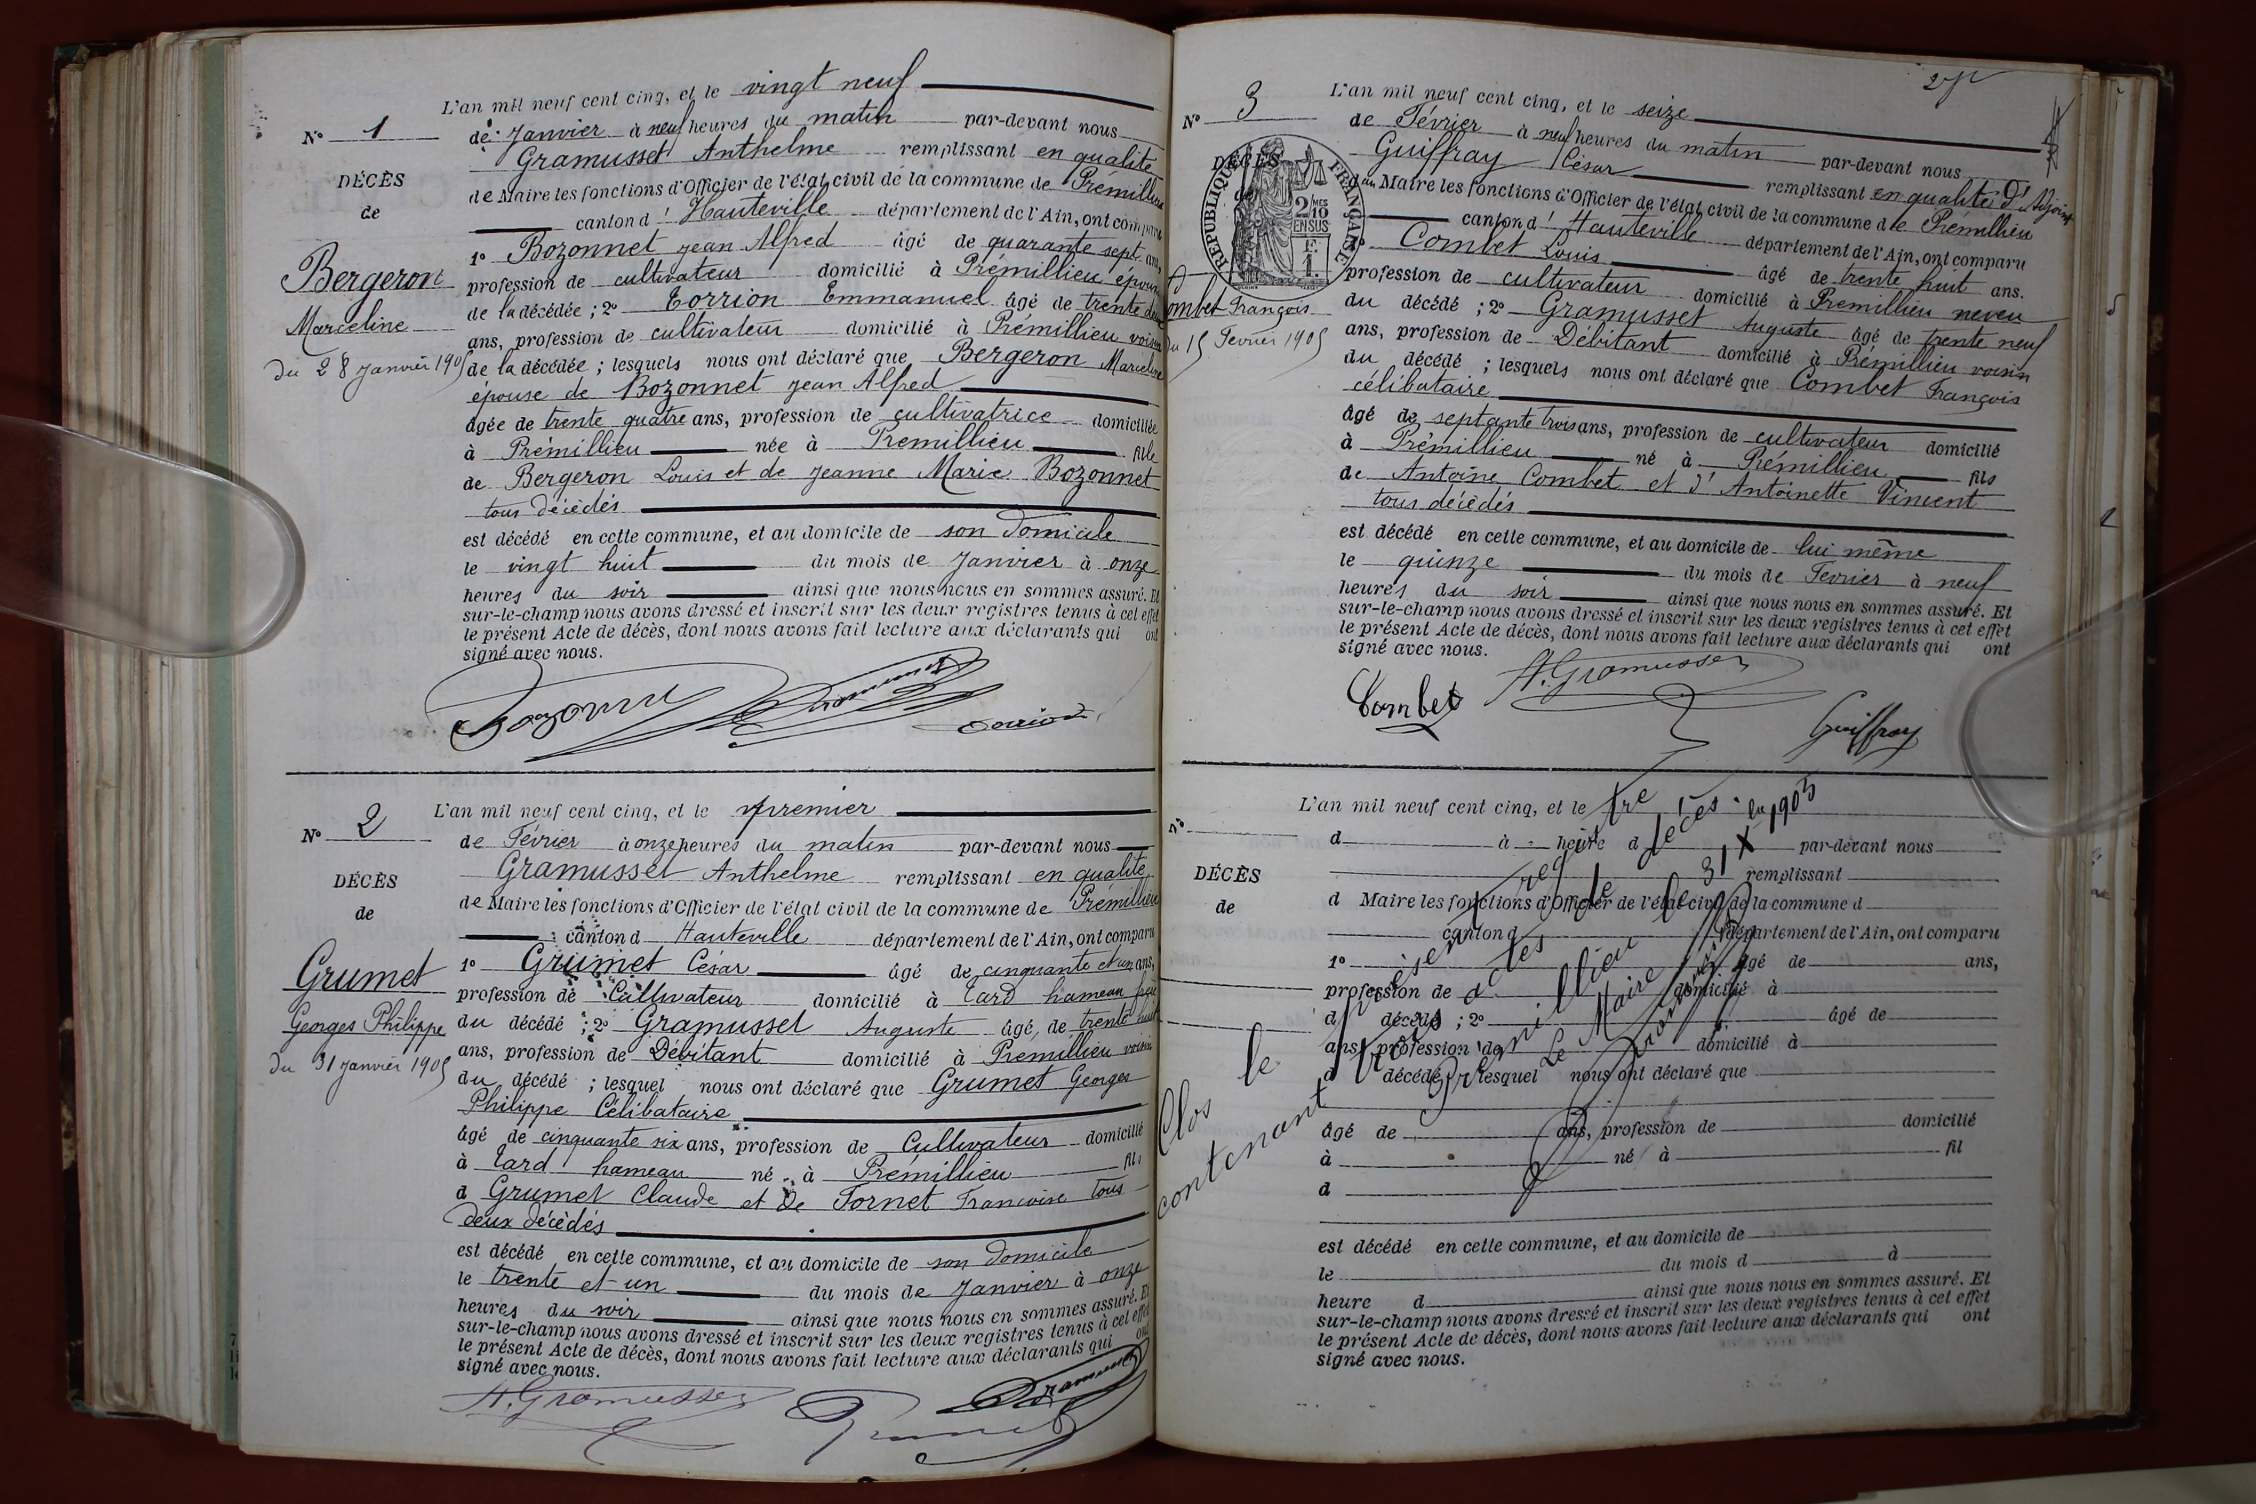 L'an mil neuf cent cinq, et le vingt neuf
N° 1
de Janvier à neuf heures du matin par-devant nous
Gramusset Anthelme remplissant en qualité
DÉCÈS
de Maire les fonctions d'Officier de l'état civil de la commune de Prémillieu
de
canton d' Hauteville département de l'Ain, ont comparu
1° Bozonnet Jean Alfred âgé de quarante sept ans,
Bergeron
profession de cultivateur domicilié à Prémillieu époux
de la décédée ; 2° Torrion Emmanuel âgé de trente deux
Marceline
ans, profession de cultivateur domicilié à Prémillieu voisin
du 28 Janvier 1905
de la décédée ; lesquels nous ont déclaré que Bergeron Marceline
épouse de Bozonnet Jean Alfred
âgée de trente quatre ans, profession de cultivatrice domiciliée
à Prémillieu née à Premillieu fille
de Bergeron Louis et de Jeanne Marie Bozonnet
tous décédés
est décédé en cette commune, et au domicile de son domicile
le vingt huit du mois de Janvier à onze
heures du soir ainsi que nous nous en sommes assuré. Et
sur-le-champ nous avons dressé et inscrit sur les deux registres tenus à cet effet
le présent Acte de décès, dont nous avons fait lecture aux déclarants qui ont
signé avec nous.
Bozonnet Gramusset Torrion
L'an mil neuf cent cinq, et le premier
N° 2
de Février à onze heures du matin par-devant nous
Gramusset Anthelme remplissant en qualité
DÉCÈS
de Maire les fonctions d'Officier de l'état civil de la commune de Prémillieu
de
canton d Hauteville département de l'Ain, ont comparu
1° Grumet César âgé de cinquante et un ans,
Grumet
profession de Cultivateur domicilié à Tard hameau
Georges Philippe
du décédé ; 2° Gramusset Auguste âgé de trente huit
du 31 Janvier 1905
ans, profession de Débitant domicilié à Prémillieu voisin
du décédé ; lesquel nous ont déclaré que Grumet Georges
Philippe Célibataire
âgé de cinquante six ans, profession de Cultivateur domicilié
à Tard hameau né à Prémillieu fils
d Grumet Claude et de Fornet Francoise tous
deux décédés
est décédé en cette commune, et au domicile de son domicile
le trente et un du mois de Janvier à onze
heures du soir ainsi que nous nous en sommes assuré. Et
sur-le-champ nous avons dressé et inscrit sur les deux registres tenus à cet effet
le présent Acte de décès, dont nous avons fait lecture aux déclarants qui ont
signé avec nous.
A. Gramusset Grumet Gramusset
L'an mil neuf cent cinq, et le seize
N° 3
de Février à neuf heures du matin par-devant nous
Guiffray César remplissant en qualité d'Adjoint
DÉCÈS
RÉPUBLIQUE FRANÇAISE
2/10 MES
EN SUS
F.
1.
au Maire les fonctions d'Officier de l'état civil de la commune d de Prémillieu
canton d' Hauteville département de l'Ain, ont comparu
1° Combet Louis âgé de trente huit ans.
profession de cultivateur domicilié à Premillieu neveu
Combet François
du décédé ; 2° Gramusset Auguste âgé de trente neuf
du 15 Février 1905
ans, profession de Débitant domicilié à Prémillieu voisin
du décédé ; lesquels nous ont déclaré que Combet François
célibataire
âgé de septante trois ans, profession de cultivateur domicilié
à Prémillieu né à Prémillieu fils
de Antoine Combet et d'Antoinette Vincent
tous décédés
est décédé en cette commune, et au domicile de lui même
le quinze du mois de Fevrier à neuf
heures du soir ainsi que nous nous en sommes assuré. Et
sur-le-champ nous avons dressé et inscrit sur les deux registres tenus à cet effet
le présent Acte de décès, dont nous avons fait lecture aux déclarants qui ont
signé avec nous.
Combet A. Gramusset Guiffray
L'an mil neuf cent cinq, et le
N°
d à heure d par-devant nous
DÉCÈS
remplissant
de
d Maire les fonctions d'Officier de l'état civil de la commune d
canton d département de l'Ain, ont comparu
1° âgé de ans,
profession de domicilié à
d décédé ; 2° âgé de
ans, profession de domicilié à
d décédé ; lesquel nous ont déclaré que
âgé de ans, profession de domicilié
à né à fil
d
est décédé en cette commune, et au domicile de
le du mois d à
heure d ainsi que nous nous en sommes assuré. Et
sur-le-champ nous avons dressé et inscrit sur les deux registres tenus à cet effet
le présent Acte de décès, dont nous avons fait lecture aux déclarants qui ont
signé avec nous.
Clos le présent registre
contenant trois actes de décès
Prémillieu le 31 Xbre 1905
Le Maire
Gramusset